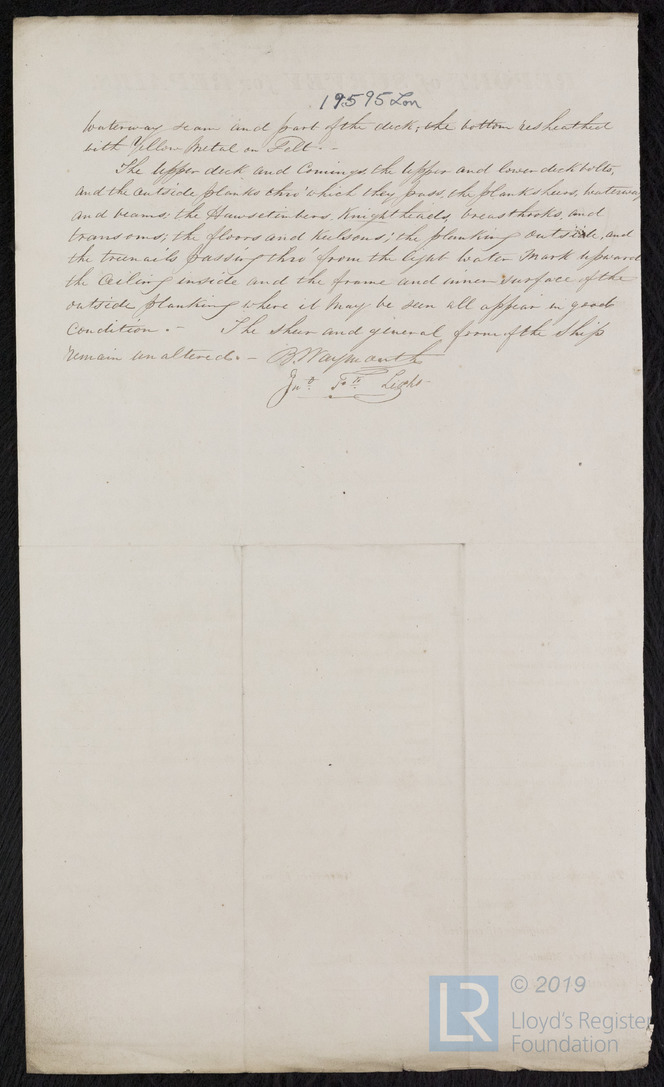 19595 Lon
Waterway seam and part of the deck; the bottom resheathed
with Yellow Metal on Felt.-
The Upper deck and Comings, the Upper and lower deck bolts,
and the outside planks thro' which they pass, the plank sheers, waterways
and beams; the Hawsetimbers, Knightheads, breasthooks, and
transoms; the floors and Keelsons; the planking outside, and
the treenails passing thro' from the light water Mark upward
the Ceiling inside and the frame and inner surface of the
outside planking where it may be seen all appear in good
Condition.- The sheer and general form of the Ship
remain unaltered.- B. Waymouth
Jn°
© 2019
Lloyd's Register
Foundation
LR